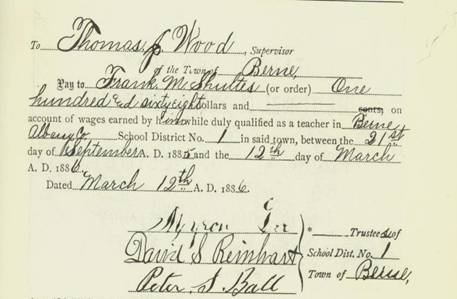 To Thomas J Wood, Supervisor
of the Town of Berne,
Pay to Frank M Shultes (or order) One
hundred and sixty eight dollars and ——— cents, on
account of wages earned by him while duly qualified as a teacher in Berne
Albany Co School District No. 1 in said town, between the 21st
day of September A. D. 1885 and the 12th day of March
A. D. 1886.
Dated March 12th A. D. 1886.
Myron
David S Reinhart
Peter S. Ball
Trustees of
School Dist. No. 1
Town of Berne,